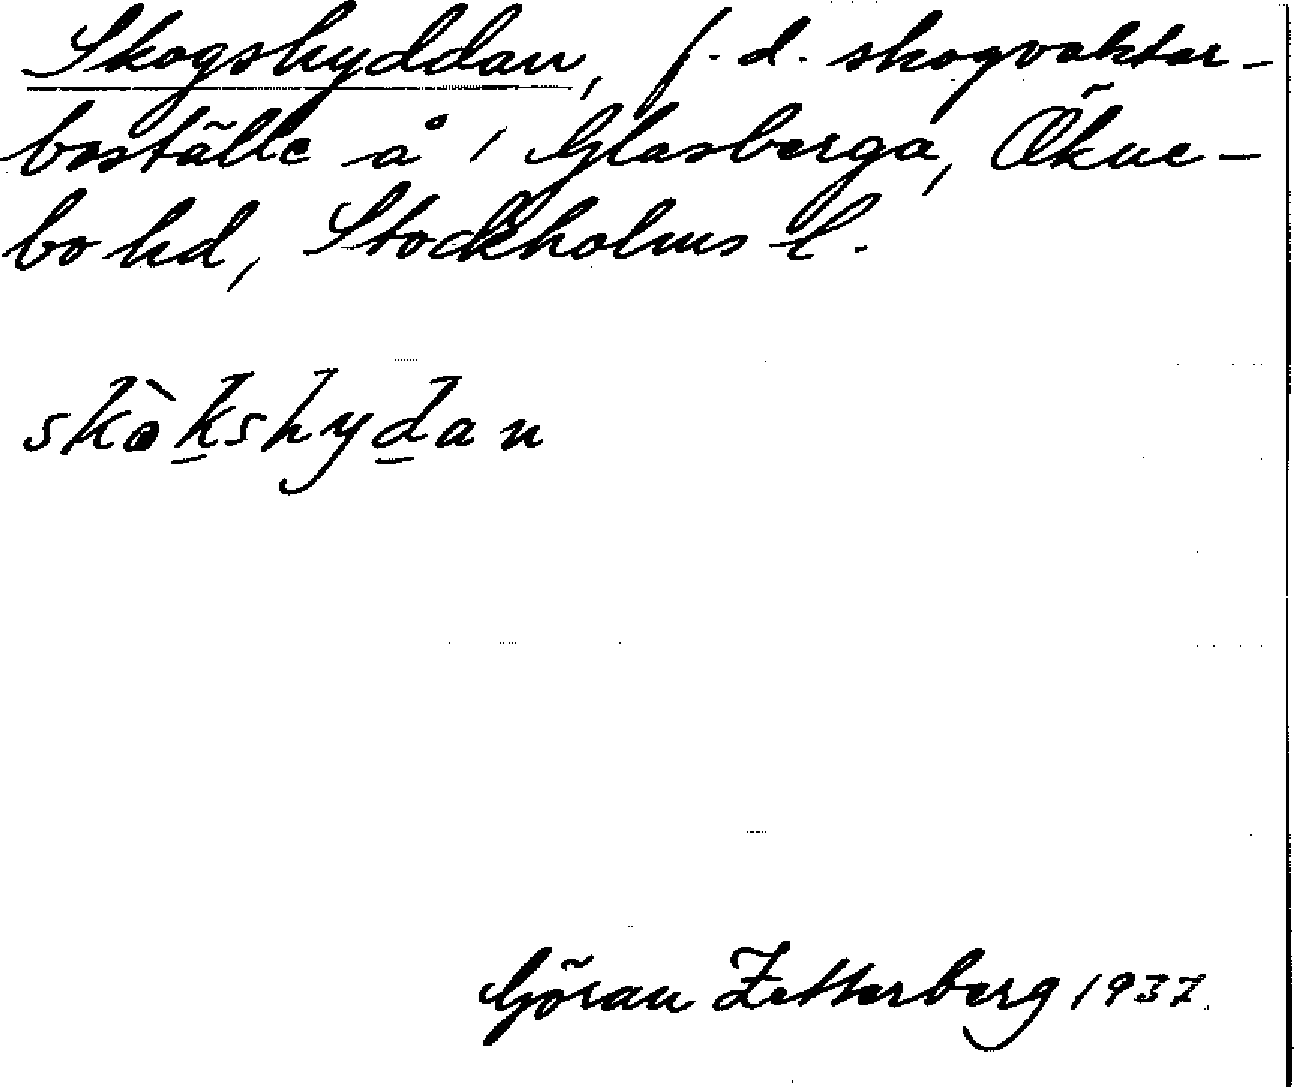 Skogshyddan, f. d. skogvaktar-
boställe å 1 Glasberga, Ökne-
bo hd, Stockholms l.
skòkshydan
Göran Zetterberg 1937.